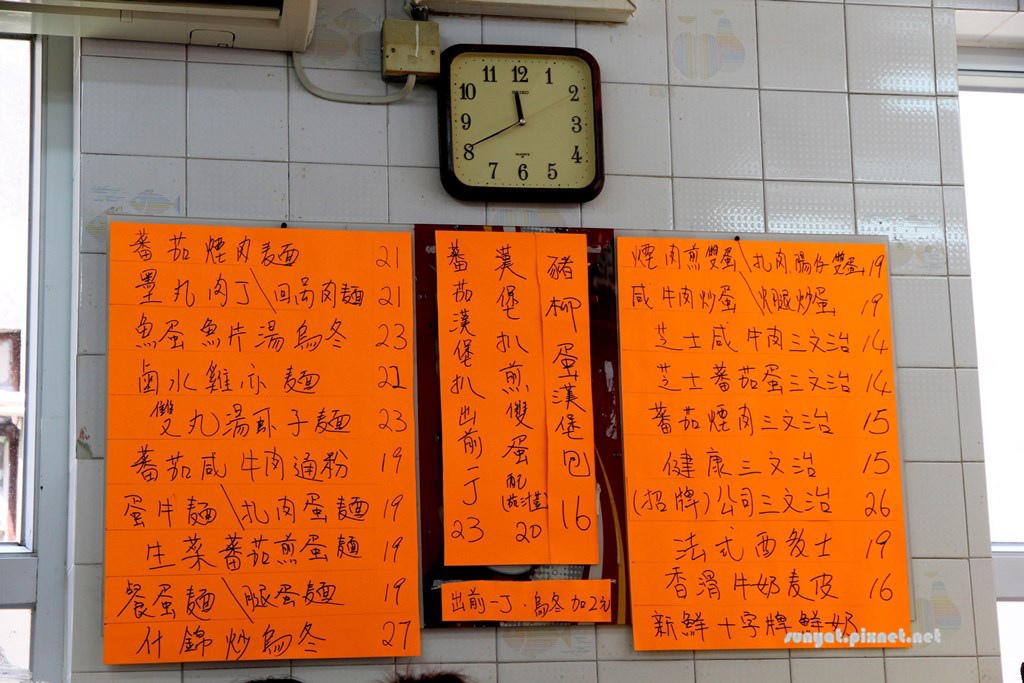 11 12 1
10 2
9 3
8 4
7 6 5
SEIKO
QUARTZ
蕃茄煙肉麵 21
墨丸肉丁\回鍋肉麵 21
魚蛋魚片湯烏冬 23
鹵水雞亦麵 22
雙丸湯卧子麵 23
蕃茄咸牛肉通粉 19
蛋牛麵\扎肉蛋麵 19
生菜蕃茄煎蛋麵 19
餐蛋麵\腿蛋麵 19
什錦炒烏冬 27
豬柳蛋漢堡包 16
漢堡扒煎雙蛋配(茄汁荳) 20
蕃茄漢堡扒出前一丁 23
出前一丁．烏冬加2元
煙肉煎雙蛋\扎肉腸仔雙蛋 19
咸牛肉炒蛋\火腿炒蛋 19
芝士咸牛肉三文治 14
芝士蕃茄蛋三文治 14
蕃茄煙肉三文治 15
健康三文治 15
(招牌)公司三文治 26
法式西多士 19
香滑牛奶麦皮 16
新鮮十字牌鮮奶
sunyat.pixnet.net